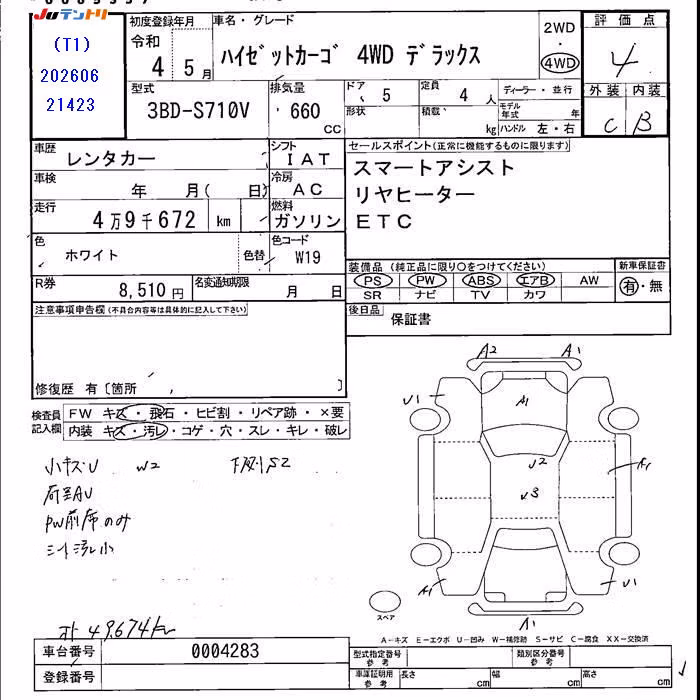 JUテントリ
(T1)
202606
21423
初度登録年月
令和
4 5月
車名・グレード
ハイゼットカーゴ 4WD デラックス
2WD
・
4WD
評価点
4
外装 内装
C B
型式
3BD-S710V
排気量
660
CC
ドア
5
形状
定員
4 人
積載
kg
ディーラー・並行
モデル年式 年
ハンドル 左・右
車歴
レンタカー
シフト
IAT
車検
年 月( 日)
冷房
AC
走行
4万9千672 km
燃料
ガソリン
色
ホワイト
色替
色コード
W19
R券
8,510円
名変通知期限
月 日
セールスポイント(正常に機能するものに限ります)
スマートアシスト
リヤヒーター
ETC
装備品(純正品に限り〇をつけてください)
PS PW ABS エアB AW
SR ナビ TV カワ
新車保証書
有・無
後日品
保証書
注意事項申告欄(不具合内容等は具体的に記入して下さい)
修復歴 有〔箇所 , 〕
検査員記入欄
FW キズ・飛石・ヒビ割・リペア跡・×要
内装 キズ・汚レ・コゲ・穴・スレ・キレ・破レ
小キズU W2 下廻りS2
荷室AU
PW前席のみ
シート汚レ小
オト 49,674km
A2 A1
U1
A1
U2
U3
A1
A1 U1
A1
スペア
A-キズ E-エクボ U-凹み W-補修跡 S-サビ C-腐食 XX-交換済
車台番号
0004283
登録番号
型式指定番号
参考
類別区分番号
参考
車庫証明用
参考
長さ cm
幅 cm
高さ cm